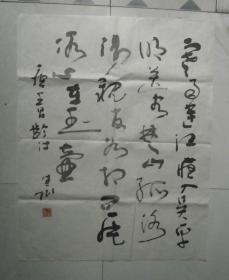 寒雨连江夜入吴平
明送客楚山孤洛
阳亲友如相问一片
冰心在玉壶
唐王昌龄诗